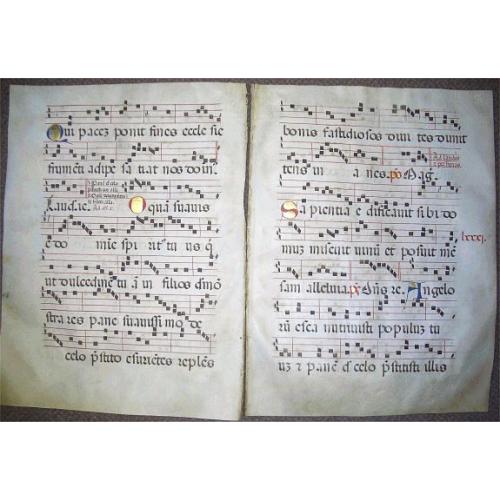 Qui pacez ponit fines eccle sie
frumenti adipe sa tiat nos dominus.
Laudate. O quā suavis
è do mine spi rit tu us q
ut dulcedinē tu ā in filios dmō
stra res pane suavissi mo de
celo p̄stito esurietes reples
bonis fastidiosos divi tes dimit
tens in a nes. ps Mag
Sapientia e dificavit si bi do
lxxxj.
muz miscuit vinū et posuit mē
sam alleluia. ps Dn̄s re. Angelo
rū esca nutrivisti populuz tu
uz z panē d celo p̄stitisti illis